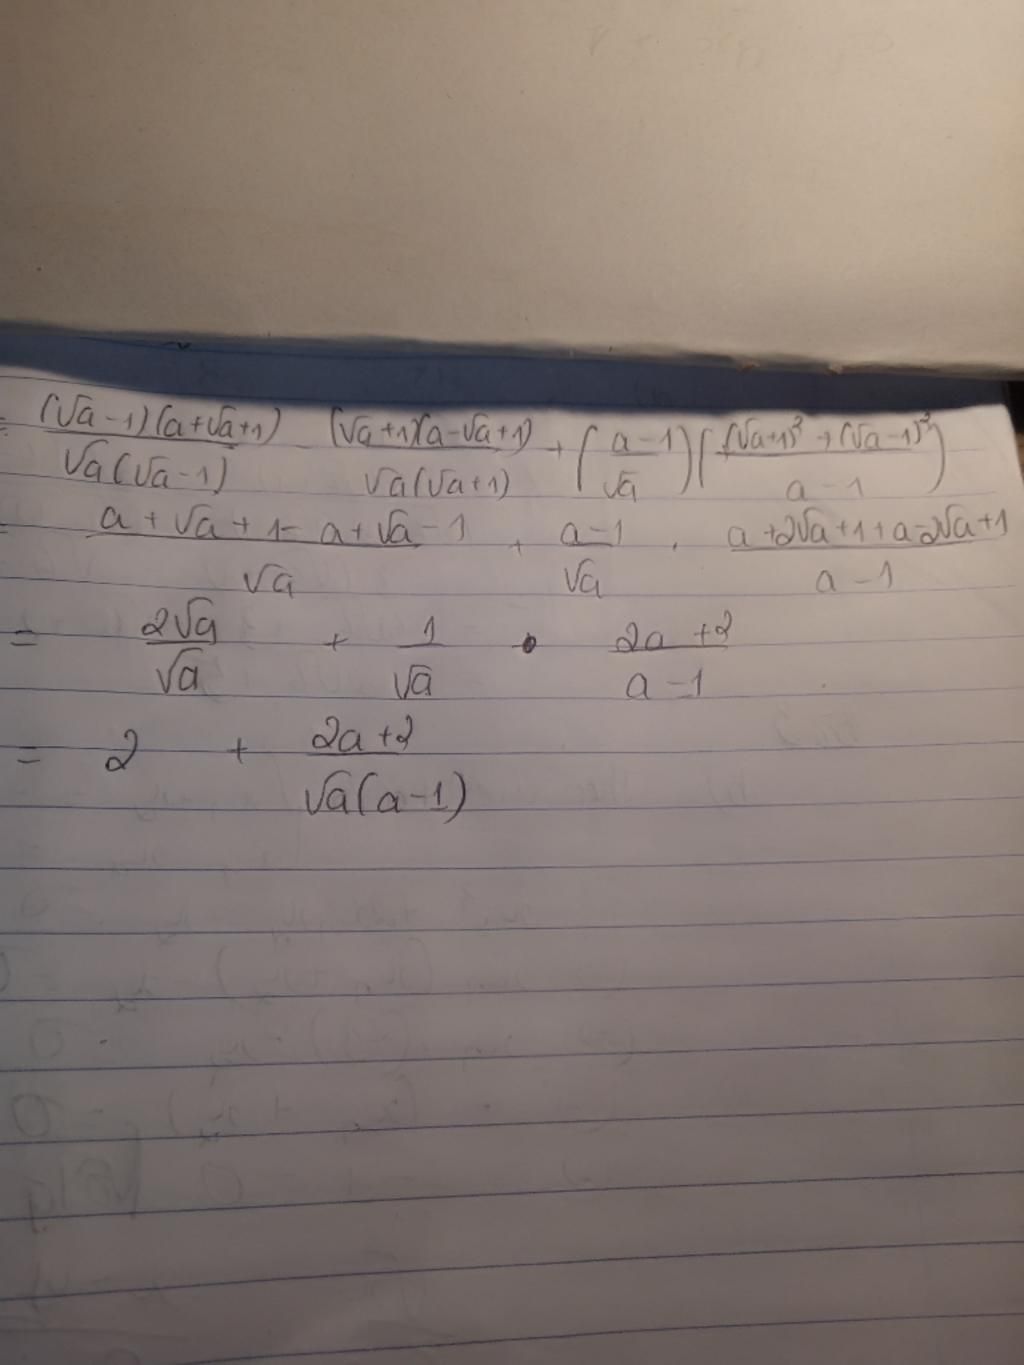 = (√a -1)(a+√a+1) / √a(√a -1) - (√a +1)(a-√a+1) / √a(√a+1) + (a-1 / √a)((√a+1)² + (√a -1)² / a-1)
= a+√a+1 - a+√a-1 / √a + a-1 / √a . a+2√a+1+a-2√a+1 / a-1
= 2√a / √a + 1 / √a • 2a+2 / a-1
= 2 + 2a+2 / √a(a-1)